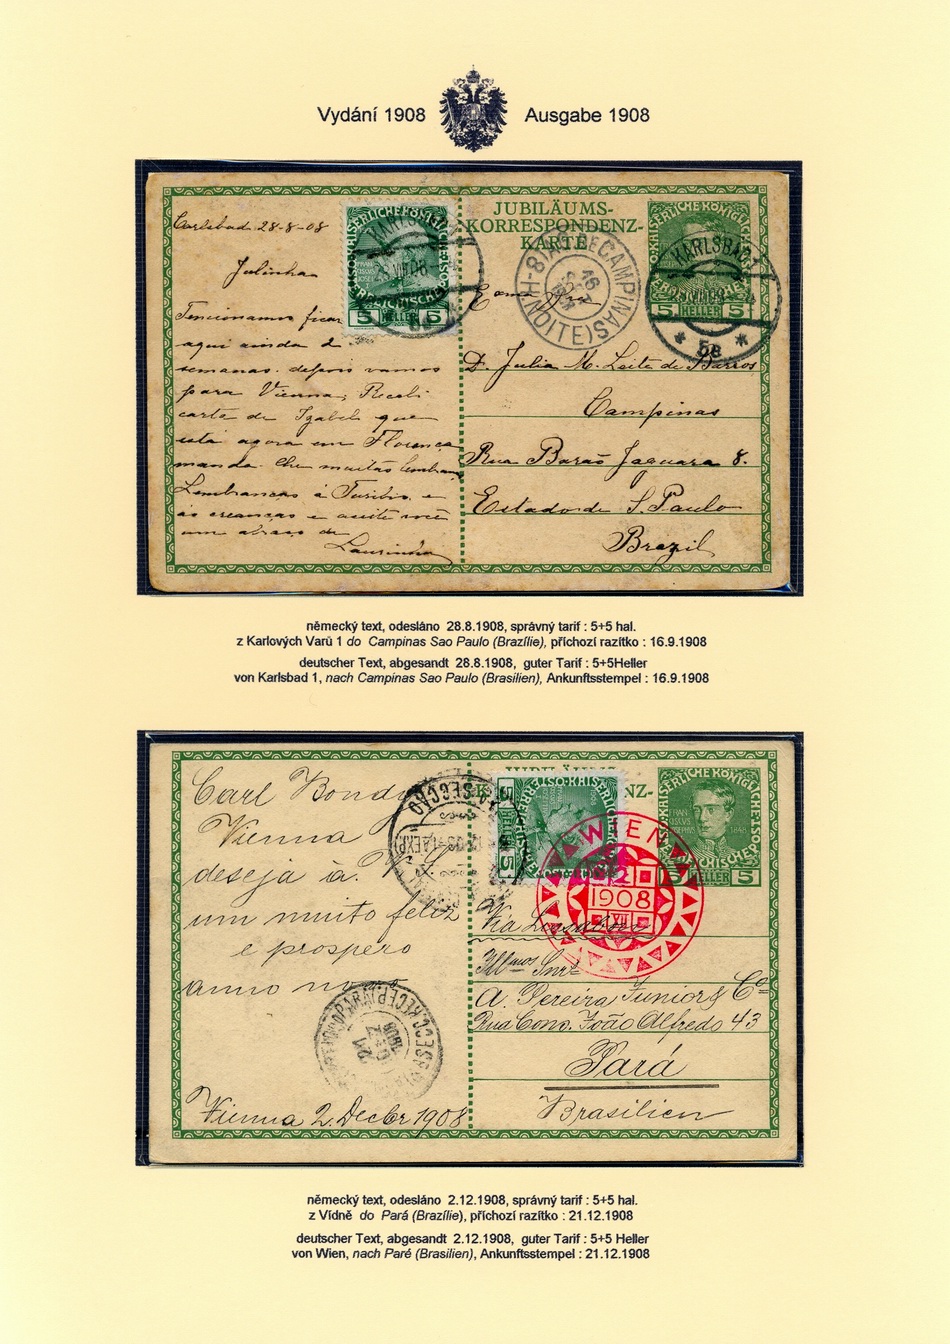 Vydání 1908
Ausgabe 1908
Carlsbad 28-8-08
Julinha
Tencionamos ficar
aqui ainda 2
semanas. depois vamos
para Vienna, Recebi
carta de Izabel que
está agora em Florença
manda lhe muitas lembr.
Lembranças á Turibio e
ás creanças e aceite você
um abraço da
Laurinha
JUBILÄUMS-
KORRESPONDENZ-
KARTE
KAISERLICHE KÖNIGLICHE
ÖSTERREICHISCHE POST
5 HELLER 5
KARLSBAD 1
28 VIII 08
CAMPINAS
8-H (NOITE)
16
KAISERLICHE KÖNIGLICHE
5 HELLER 5
KARLSBAD 1
* 5a *
Exma Snra
D. Julia M. Leite de Barros
Campinas
Rua Barão Jaguara 8.
Estado de S. Paulo
Brazil
německý text, odesláno 28.8.1908, správný tarif : 5+5 hal.
z Karlových Varů 1 do Campinas Sao Paulo (Brazílie), příchozí razítko : 16.9.1908
deutscher Text, abgesandt 28.8.1908, guter Tarif : 5+5Heller
von Karlsbad 1, nach Campinas Sao Paulo (Brasilien), Ankunftsstempel : 16.9.1908
Carl Bondy
Vienna
deseja à
um muito feliz
e prospero
anno novo
Vienna 2. Decbr 1908
SECÇÃO
5 HELLER 5
KAISERLICHE KÖNIGLICHE
FRANCISCUS JOSEPHUS I 1848
5 HELLER 5
WIEN
2
1908
XII
Via Lissabon
Illmos Snrs
A. Pereira Junior & Co
Rua Cons. João Alfredo 43
Pará
Brasilien
21
DEZ
1908
německý text, odesláno 2.12.1908, správný tarif : 5+5 hal.
z Vídně do Pará (Brazílie), příchozí razítko : 21.12.1908
deutscher Text, abgesandt 2.12.1908, guter Tarif : 5+5 Heller
von Wien, nach Paré (Brasilien), Ankunftsstempel : 21.12.1908